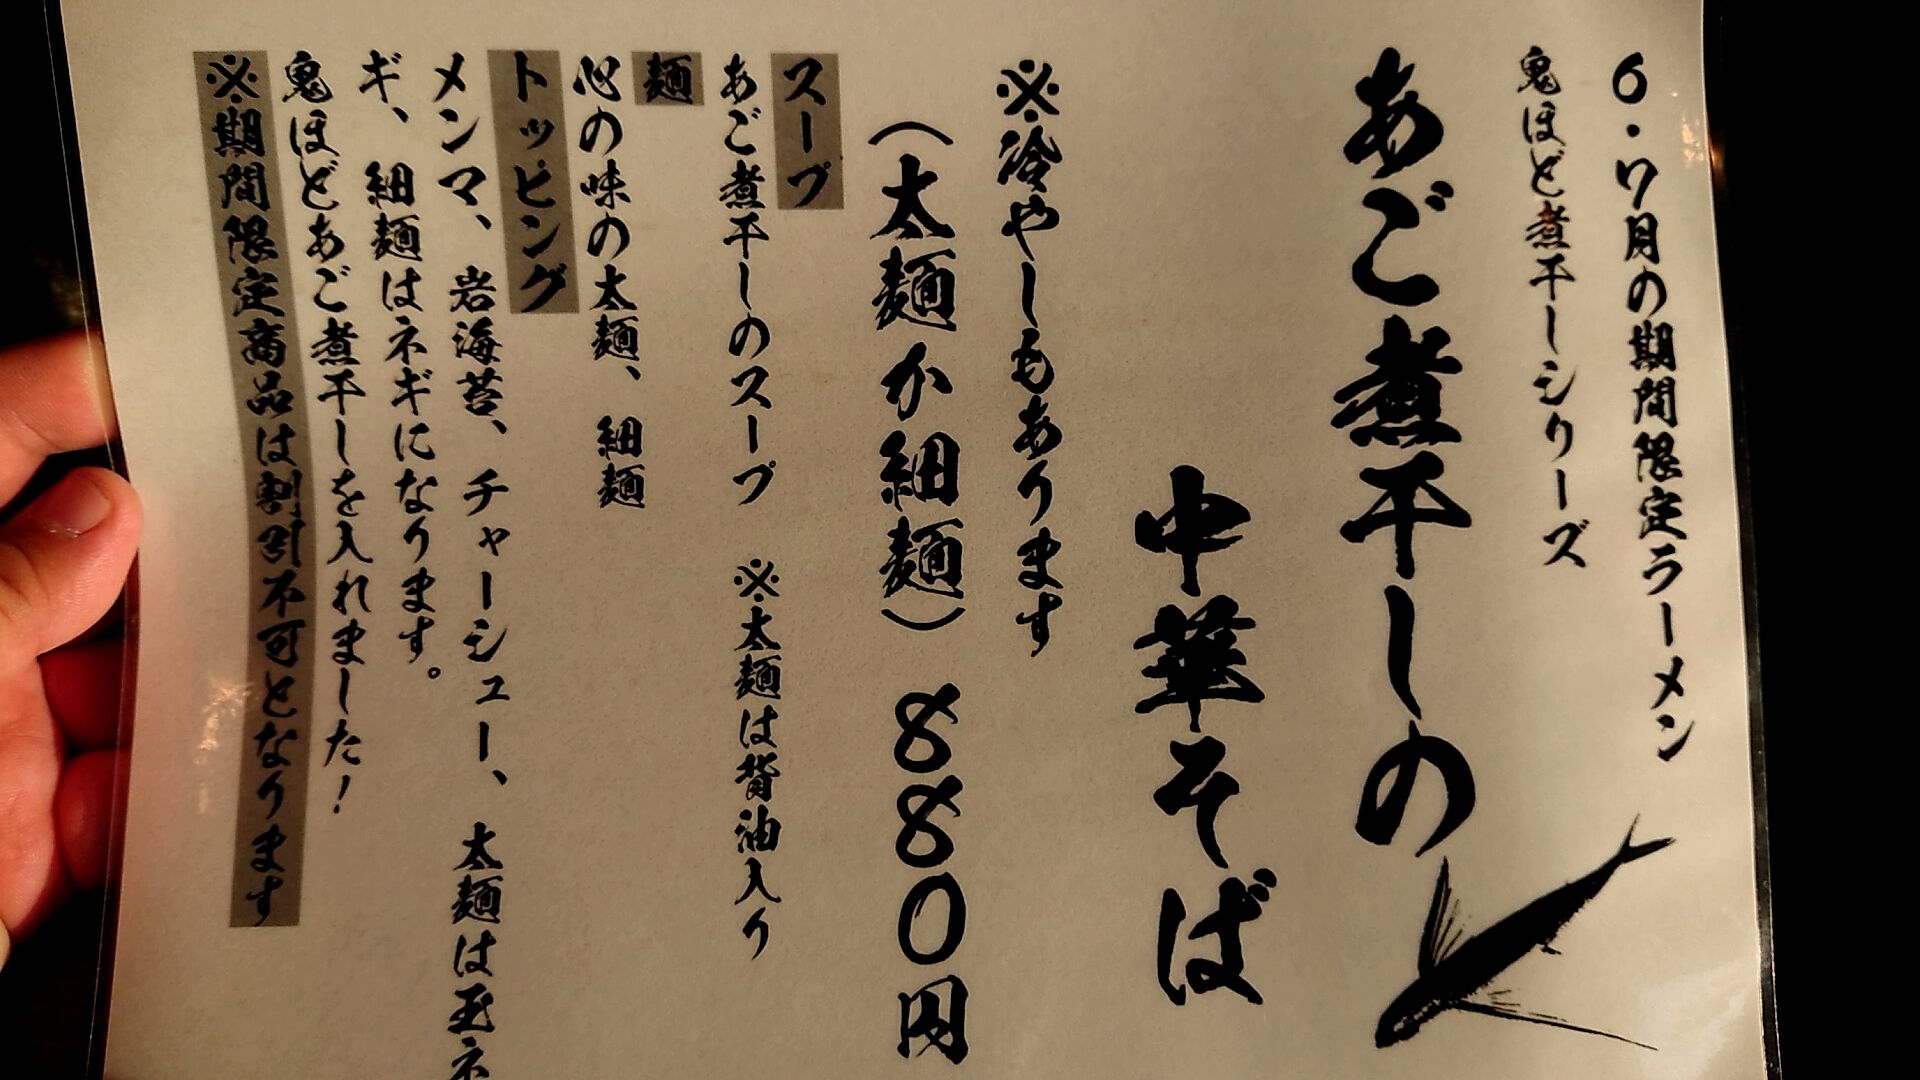 6・7月の期間限定ラーメン
鬼ほど煮干しシリーズ
あご煮干しの
中華そば
※冷やしもあります
(太麺か細麺)880円
スープ
あご煮干しのスープ ※太麺は背油入り
麺
心の味の太麺、細麺
トッピング
メンマ、岩海苔、チャーシュー、太麺は玉ネ
ギ、細麺はネギになります。
鬼ほどあご煮干しを入れました!
※期間限定商品は割引不可となります